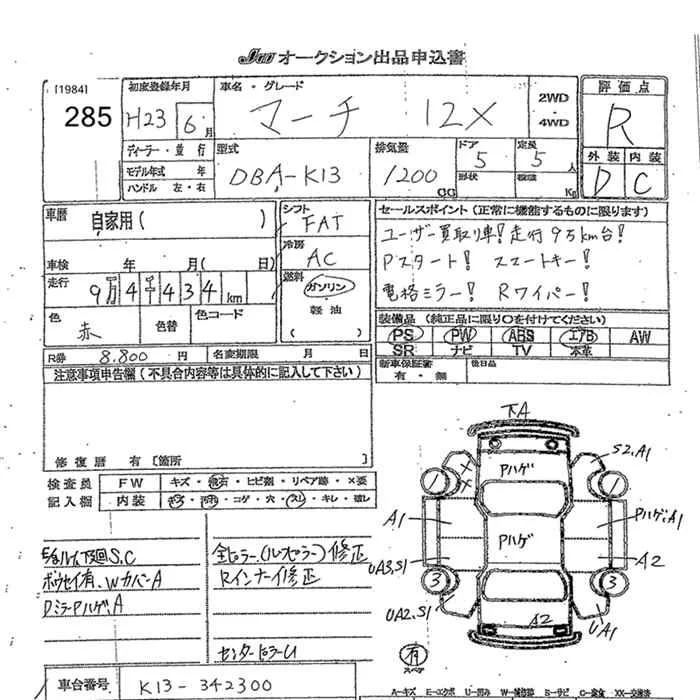 JU オークション出品申込書
[1984]
285
初度登録年月
H23 6月
車名・グレード
マーチ 12X
2WD
・
4WD
評価点
R
ディーラー・並行
モデル年式 年
ハンドル 左・右
型式
DBA-K13
排気量
1200 CC
ドア
5
形状
定員
5 人
積載 Kg
外装 内装
D C
車歴
自家用( )
シフト
FAT
車検 年 月( 日)
冷房
AC
走行
9万4千434km
燃料
ガソリン
軽油
( )
色
赤
色替
色コード
セールスポイント(正常に機能するものに限ります)
ユーザー買取り車! 走行9万km台!
Pスタート! スマートキー!
電格ミラー! Rワイパー!
装備品(純正品に限り○を付けてください)
PS PW ABS エアB AW
SR ナビ TV 本革
新車保証書
有・無
後日品
R券 8.800 円
名変期限 月 日
注意事項申告欄(不具合内容等は具体的に記入して下さい)
修復歴 有〔箇所 〕
検査員
記入欄
FW キズ・飛石・ヒビ割・リペア跡・×要
内装 キズ・汚れ・コゲ・穴・スレ・キレ・破レ
下回S.C
ボウセイ有、Wカバー A
DミラーPハゲ、A
修正
Rインナーイ修正
センターピラーU
車台番号 K13-342300
下A
Pハゲ
S2,A1
1
1
A1
Pハゲ,A1
Pハゲ
UA3,S1
A2
3
3
UA2,S1
A2
UA1
有
スペア
A-キズ E-エクボ U-凹み W-補修跡 S-サビ C-腐食 XX-交換済